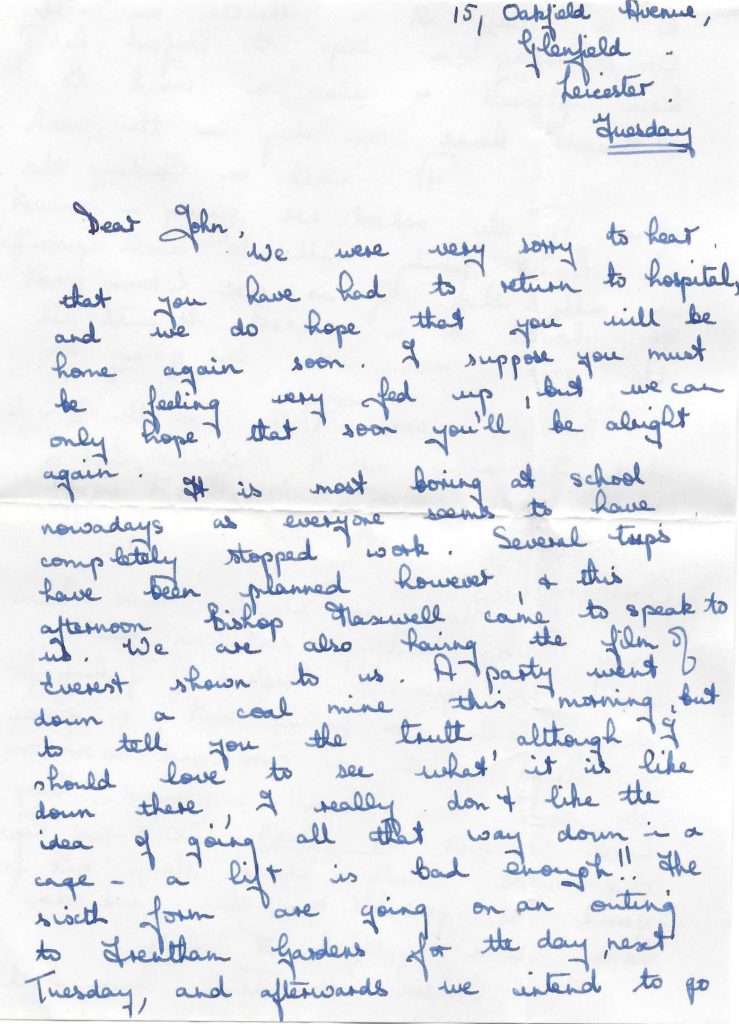 15, Oakfield Avenue,
Glenfield
Leicester.
Tuesday
Dear John,
We were very sorry to hear
that you have had to return to hospital,
and we do hope that you will be
home again soon. I suppose you must
be feeling very fed up, but we can
only hope that soon you'll be alright
again. It is most boring at school
nowadays as everyone seems to have
completely stopped work. Several trips
have been planned however, & this
afternoon Bishop Maxwell came to speak to
us. We are also having the film of
Everest shown to us. A party went
down a coal mine this morning, but
to tell you the truth, although I
should love to see what it is like
down there, I really don't like the
idea of going all that way down in a
cage - a lift is bad enough!! The
sixth form are going on an outing
to Trentham Gardens for the day, next
Tuesday, and afterwards we intend to go